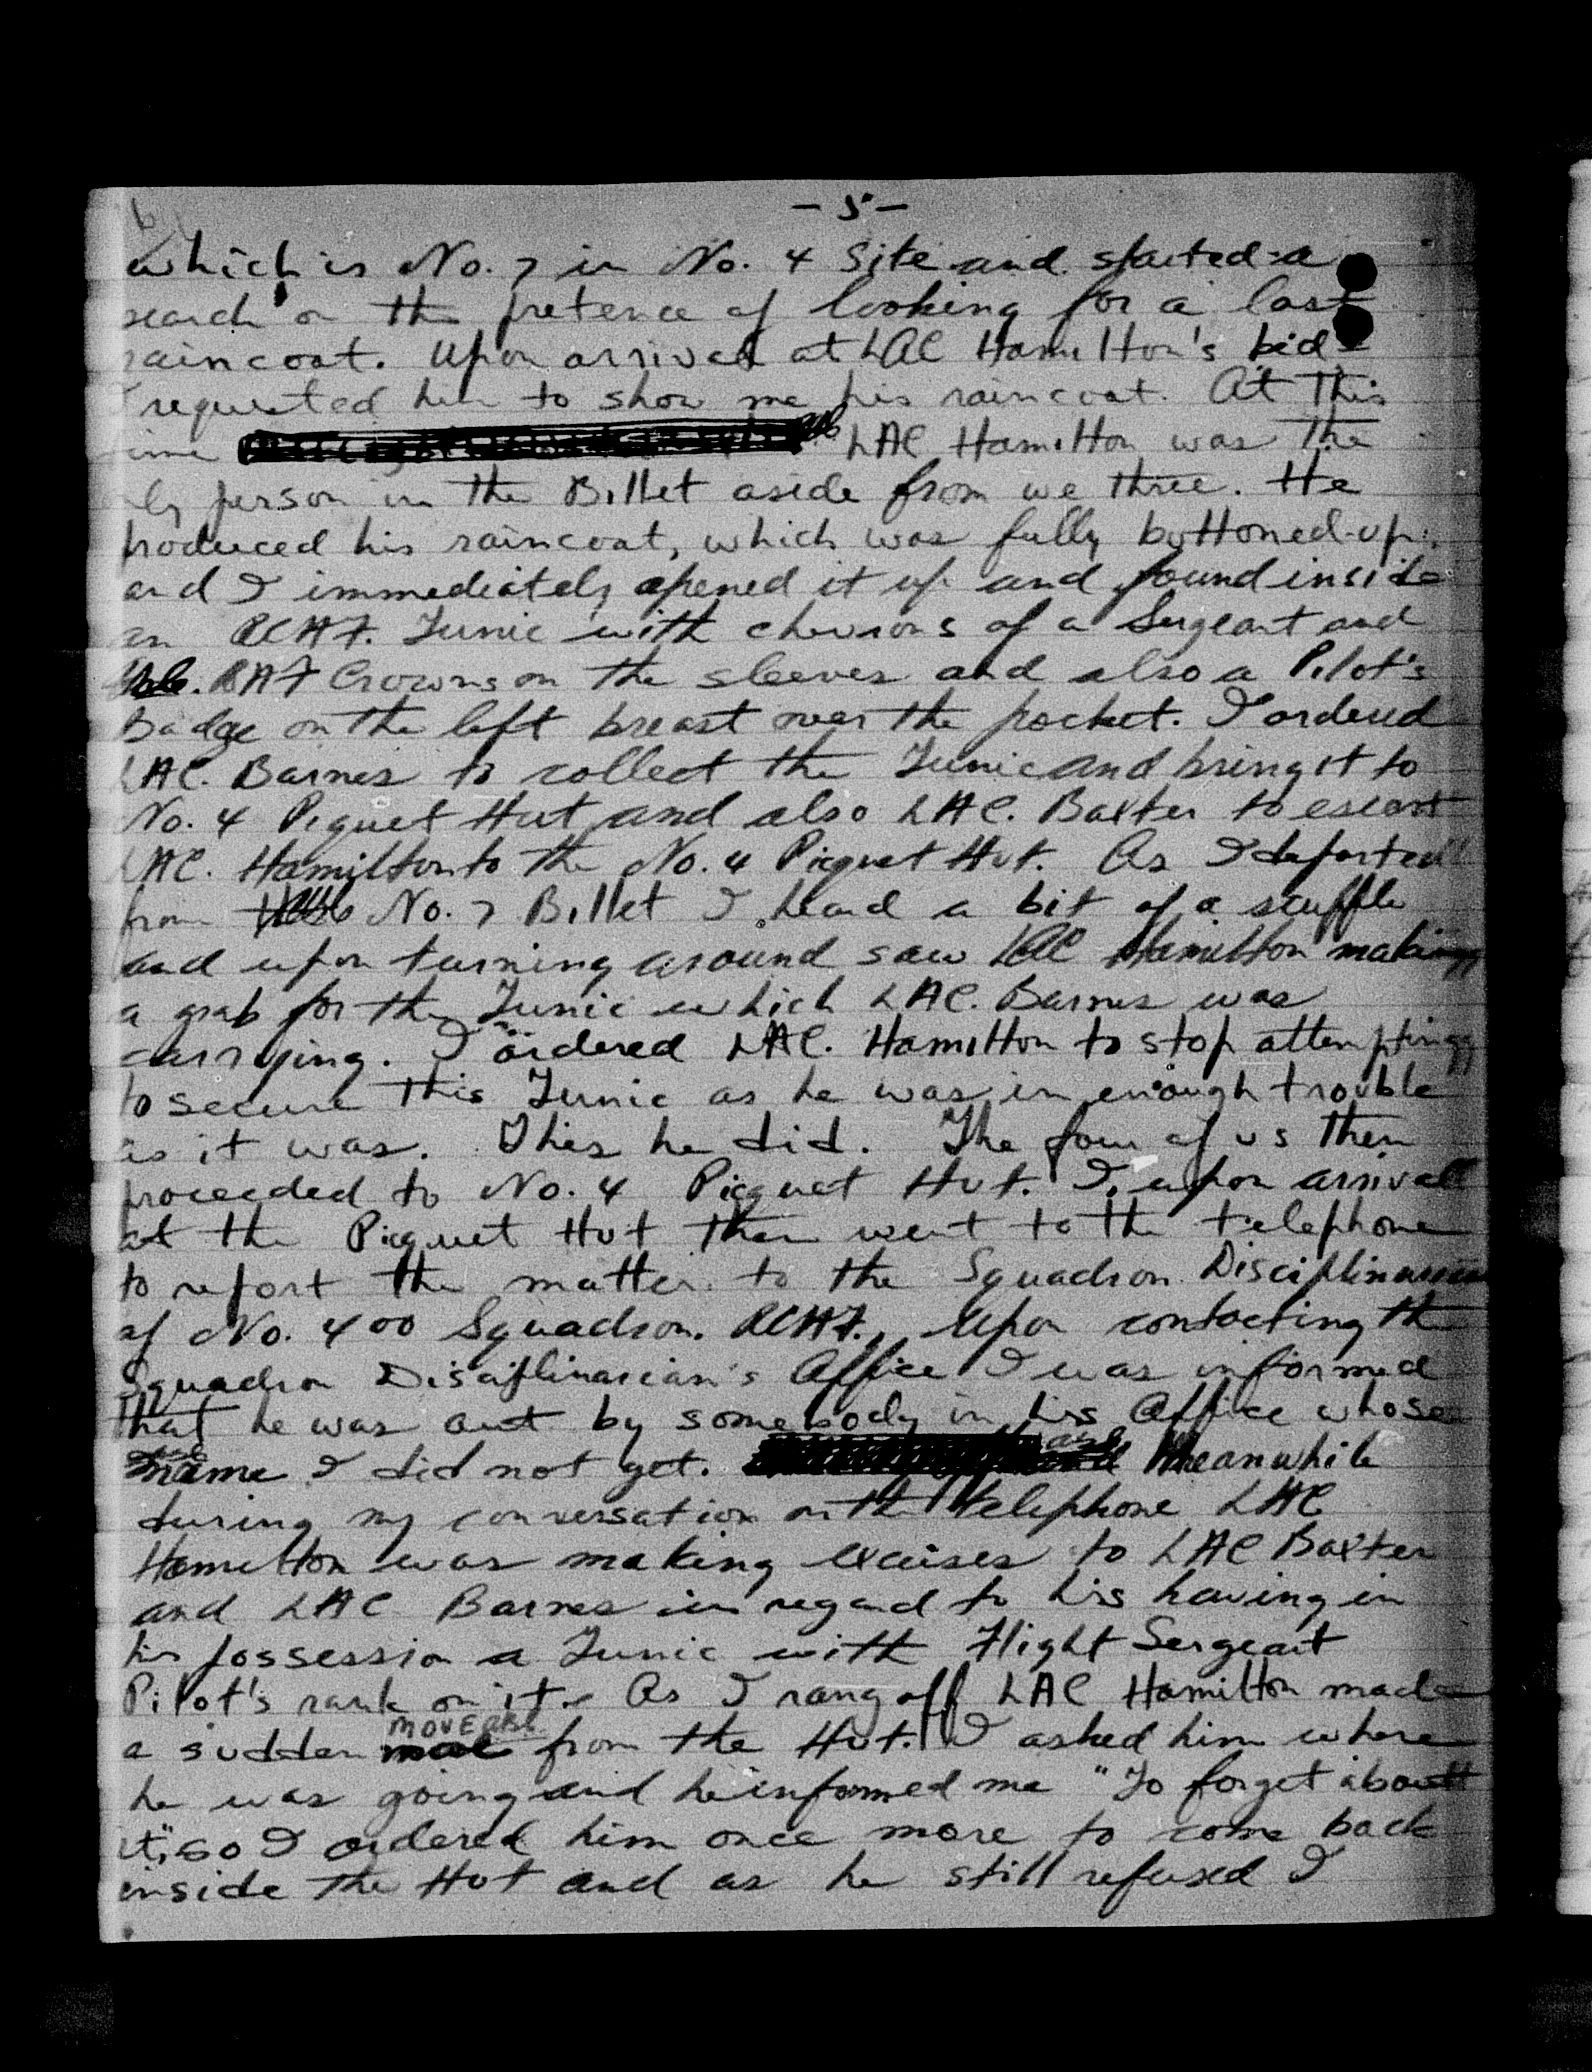 - 5 -
which is No. 7 in No. 4 Site and started a
search on the pretence of looking for a lost
raincoat. Upon arrival at LAC Hamilton's bed
I requested him to show me his raincoat. At This
time LAC Hamilton was The
only person in the Billet aside from we three. He
produced his raincoat, which was fully buttoned-up,
and I immediately opened it up and found inside
an RCAF. Tunic with chevrons of a Sergeant and
RAF Crowns on the sleeves and also a Pilot's
Badge on the left breast over the pocket. I ordered
LAC. Barnes to collect the Tunic and bring it to
No. 4 Piquet Hut and also LAC. Baxter to escort
LAC. Hamilton to the No. 4 Picquet Hut. As I departed
from No. 7 Billet I heard a bit of a scuffle
and upon turning around saw LAC Hamilton making
a grab for the Tunic which LAC. Barnes was
carrying. I ordered LAC. Hamilton to stop attempting
to secure this Tunic as he was in enough trouble
as it was. This he did. The four of us then
proceeded to No. 4 Picquet Hut. I, upon arrival
at the Picquet Hut then went to the telephone
to report the matter to the Squadron Disciplinarian
of No. 400 Squadron. RCAF., Upon contacting the
Squadron Disciplinarian's Office I was informed
that he was out by somebody in his Office whose
name I did not get. Meanwhile
during my conversation on the telephone LAC
Hamilton was making excuses to LAC Baxter
and LAC Barnes in regard to his having in
his possession a Tunic with Flight Sergeant
Pilot's rank on it. As I rang off LAC Hamilton made
a sudden move from the Hut. I asked him where
he was going and he informed me "To forget about
it," so I ordered him once more to come back
inside the Hut and as he still refused I